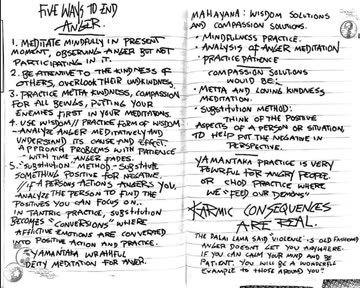 FIVE WAYS TO END
ANGER.
1. MEDITATE MINDFULLY IN PRESENT
MOMENT, OBSERVING ANGER BUT NOT
PARTICIPATING IN IT.
2. BE ATTENTIVE TO THE KINDNESS OF
OTHERS, OVERLOOK THEIR UNKINDNESS.
3. PRACTICE METTA KINDNESS, COMPASSION
FOR ALL BEINGS, PUTTING YOUR
ENEMIES FIRST IN YOUR MEDITATIONS.
4. USE WISDOM // PRACTICE FORM OF WISDOM:
-ANALYZE ANGER MEDITATIVELY AND
UNDERSTAND ITS CAUSE AND EFFECT
APPROACH PROBLEMS WITH PATIENCE
-WITH TIME ANGER FADES.
5. "SUBSTITUTION" METHOD - SUBSTITUTE
SOMETHING POSITIVE FOR NEGATIVE.
// IF A PERSONS ACTIONS ANGERS YOU,
ANALYZE THE PERSON TO FIND THE
POSITIVES YOU CAN FOCUS ON..
IN TANTRIC PRACTICE, SUBSTITUTION
BECOMES "CONVERSIONS" WHERE
AFFLICTIVE EMOTIONS ARE CONVERTED
INTO POSITIVE ACTION AND PRACTICE.
YAMANTAKA WRATHFUL
DEITY MEDITATION FOR ANGER.
MAHAYANA: WISDOM SOLUTIONS
AND COMPASSION SOLUTIONS.
• MINDFULNESS PRACTICE.
• ANALYSIS OF ANGER MEDITATION
• PRACTICE PATIENCE
COMPASSION SOLUTIONS
WOULD BE:
• METTA AND LOVING KINDNESS
MEDITATION.
• SUBSTITUTION METHOD:
THINK OF THE POSITIVE
ASPECTS OF A PERSON OR SITUATION,
TO HELP PUT THE NEGATIVE IN
PERSPECTIVE.
YAMANTAKA PRACTICE IS VERY
POWERFUL FOR ANGRY PEOPLE.
OR CHOD PRACTICE WHERE
WE "FEED OUR DEMONS"
KARMIC CONSEQUENCES
ARE REAL.
THE DALAI LAMA SAID 'VIOLENCE' IS OLD FASHIONED
ANGER DOESN'T GET YOU ANYWHERE.
IF YOU CAN CALM YOUR MIND AND BE
PATIENT, YOU WILL BE A WONDERFUL
EXAMPLE TO THOSE AROUND YOU!